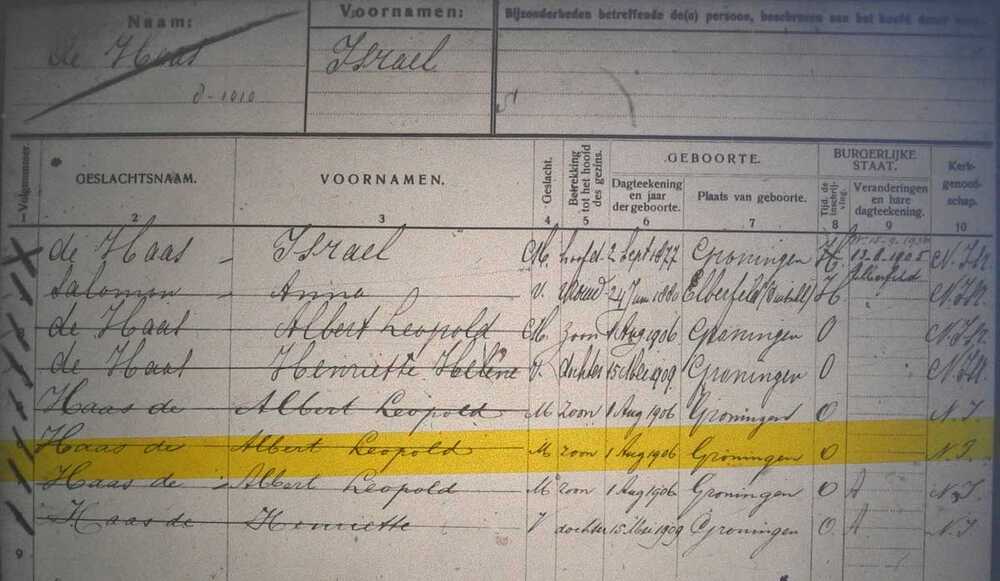 Naam: Voornamen: Bijzonderheden betreffende de(n) persoon, beschreven aan het hoofd dezer
de Haas Israel
d-1010
Volgnummer GESLACHTSNAAM. VOORNAMEN. Geslacht. Betrekking tot het hoofd des gezins. GEBOORTE. Dagteekening en jaar der geboorte. Plaats van geboorte. BURGERLIJKE STAAT. Tijd. de inschrijving. Veranderingen en hare dagteekening. Kerkgenootschap.
2 3 4 5 6 7 8 9 10
de Haas Israel M. hoofd 2 Sept 1877 Groningen H 13-8-1905 Elberfeld N.I.
Salomon Anna V. vrouw 24 Juni 1880 Elberfeld H N.I.
de Haas Albert Leopold M. zoon 1 Aug 1906 Groningen O N.I.
de Haas Henriette Helène V. dochter 15 Mei 1909 Groningen O N.I.
Haas de Albert Leopold M zoon 1 Aug 1906 Groningen O N.I.
Haas de Albert Leopold M zoon 1 Aug 1906 Groningen O N.I.
Haas de Albert Leopold M zoon 1 Aug 1906 Groningen O A N.I.
Haas de Henriette V dochter 15 Mei 1909 Groningen O. A N.I.
9